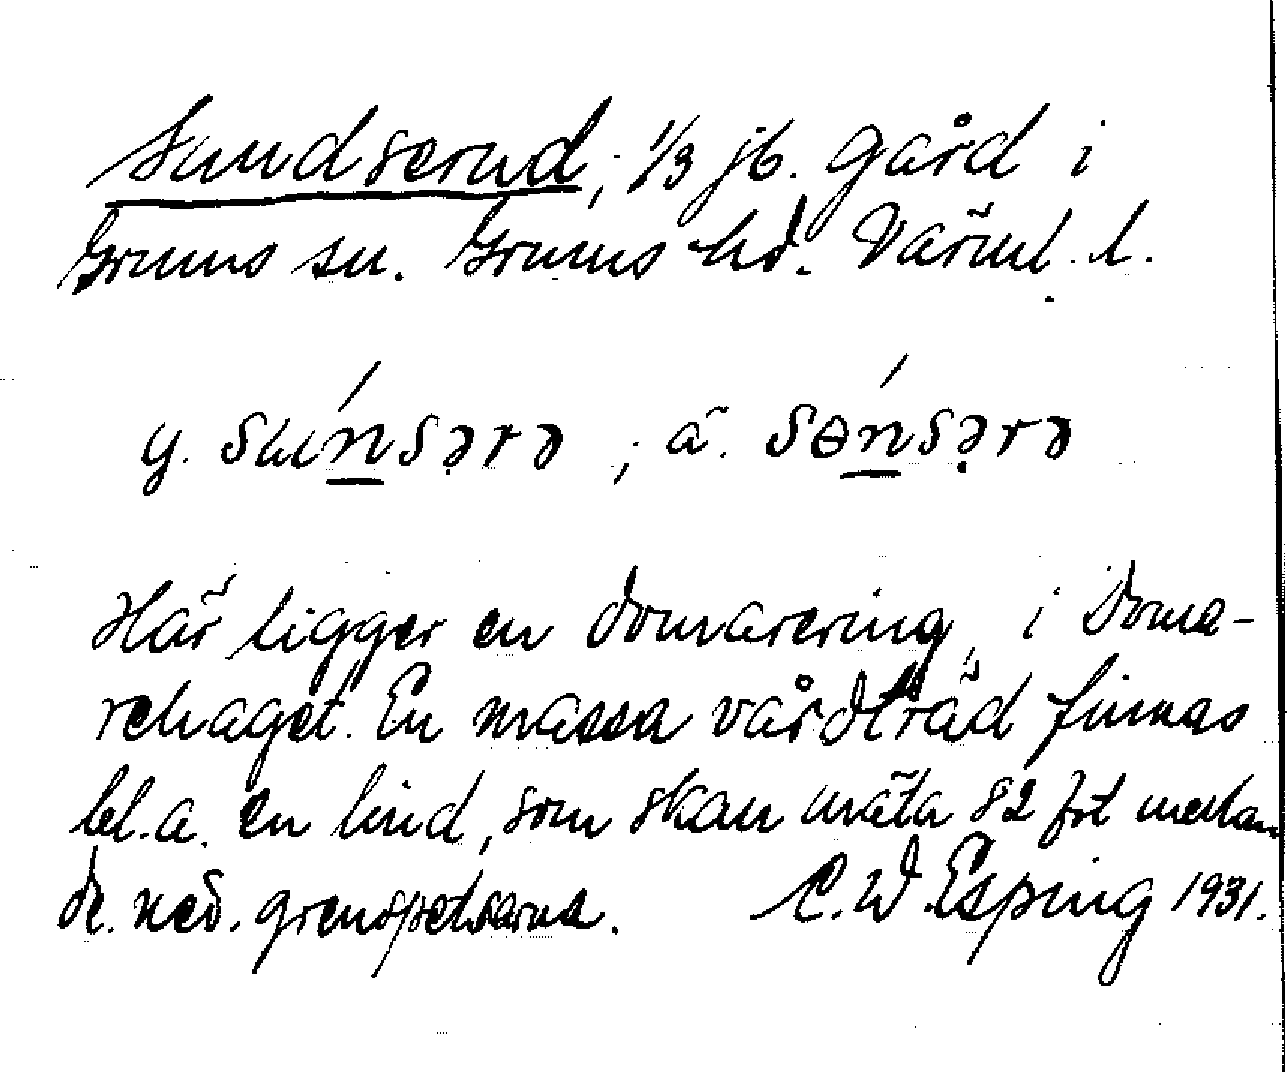 Sundserud, 1/3 jb. gård i
Grums sn. Grums hd. Värml. l.
y. suńsərə ; ä. sɵńsərə
Här ligger en domarering, i Doma-
rehaget. En massa vårdträd finnas
bl.a. en lind, som skall mäta 82 fot mellan
de ned. grenspetsarna. C.W. Esping 1931.